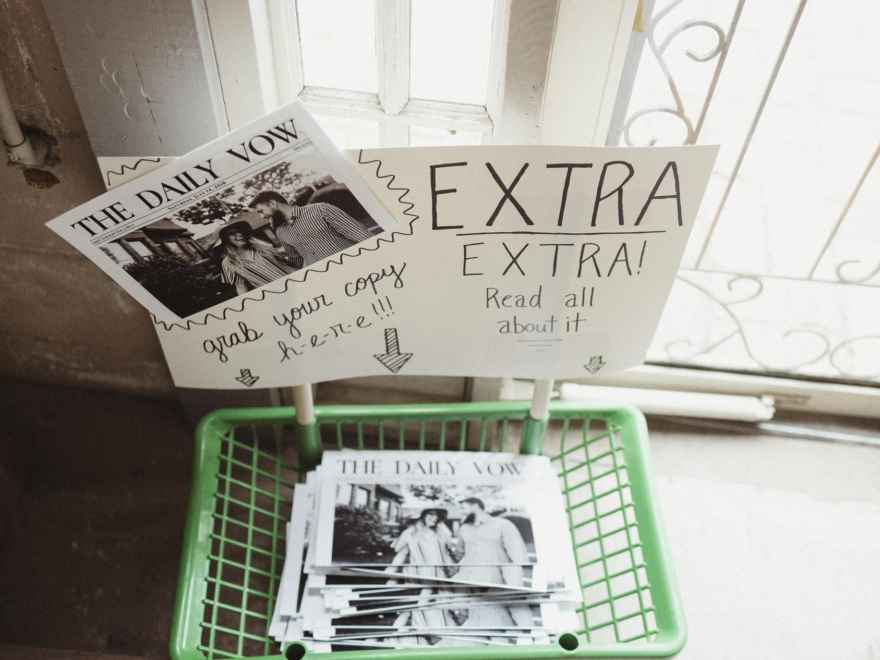 THE DAILY VOW
EXTRA
EXTRA!
Read all
about it
grab your copy
h-e-r-e!!!
THE DAILY VOW